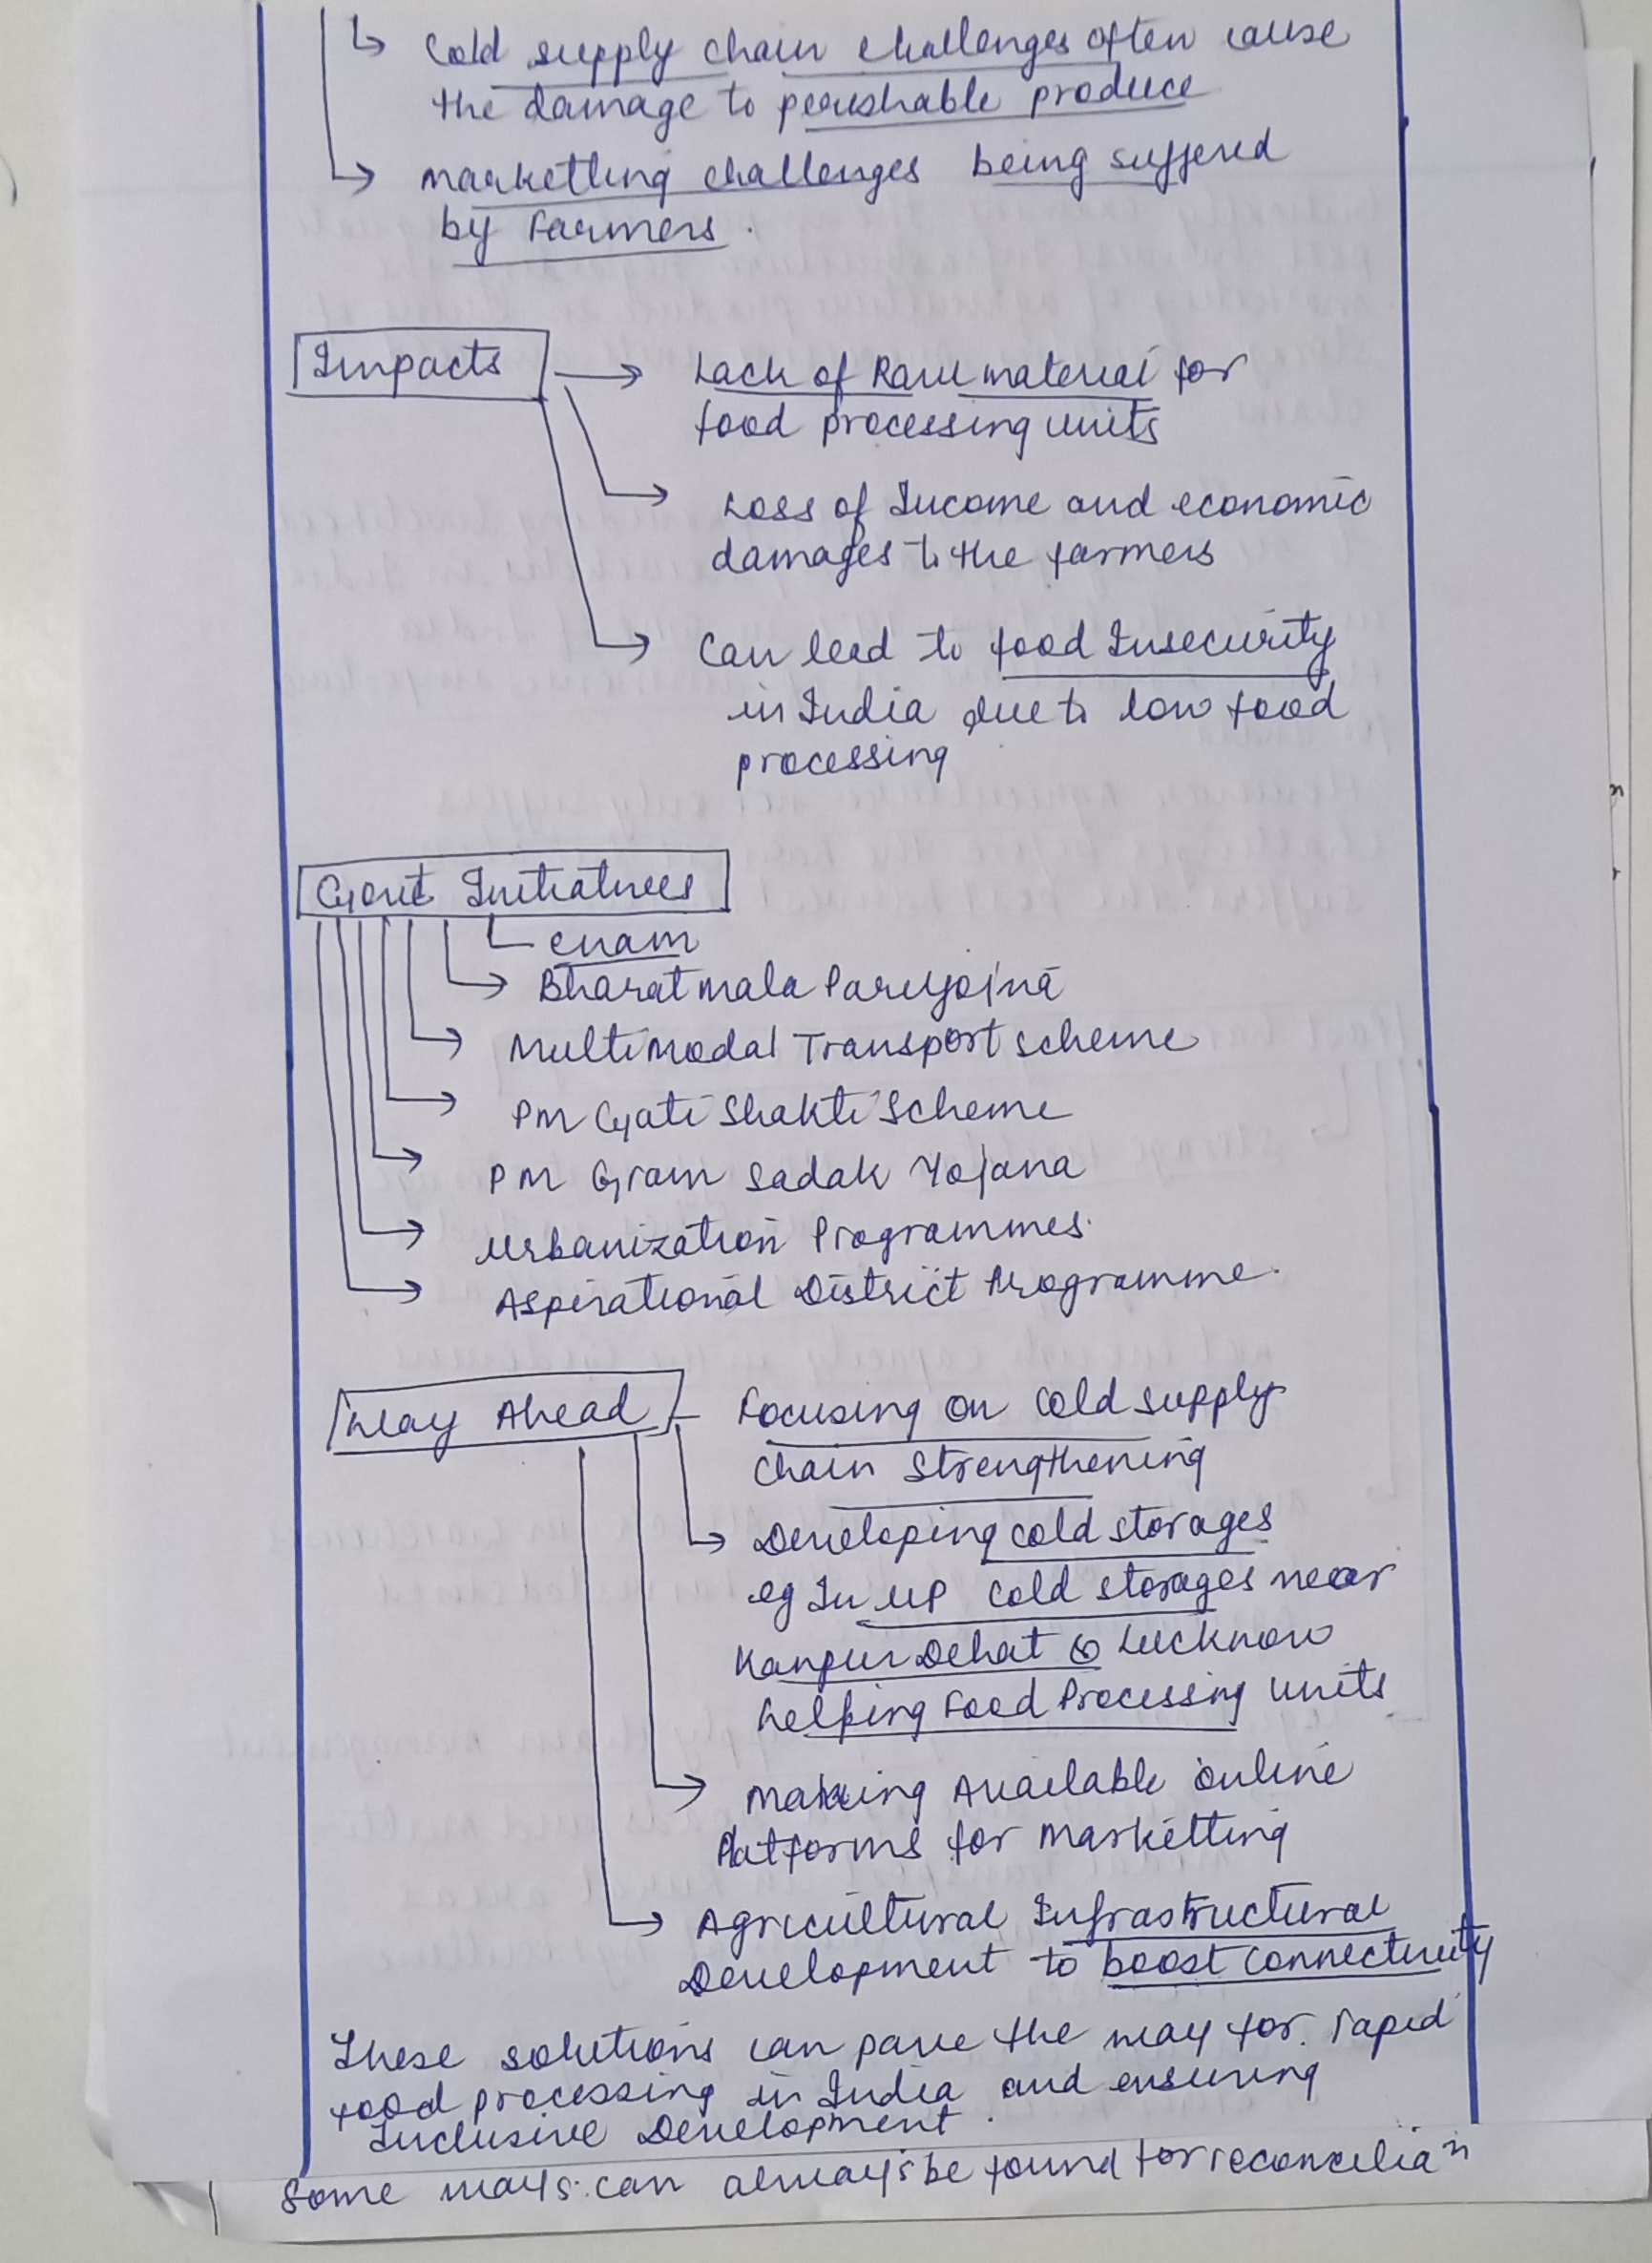 ↳ Cold supply chain challenges often cause
the damage to perishable produce
↳ Marketting challenges being suffered
by Farmers.
Impacts → Lack of Raw material for
food processing units
→ Loss of Income and economic
damages to the farmers
→ Can lead to food Insecurity
in India due to low food
processing
Govt Initiatives
enam
→ Bharatmala Pariyojna
→ Multimodal Transport scheme
→ PM Gati Shakti Scheme
→ PM Gram Sadak Yojana
→ Urbanization Programmes.
→ Aspirational District Programme.
Way Ahead - Focusing on Cold supply
Chain Strengthening
→ Developing cold storages
eg In UP cold storages near
Kanpur Dehat & Lucknow
helping Food Processing Units
→ Making Available online
Platforms for Marketting
→ Agricultural Infrastructural
Development to boost connectivity
These solutions can pave the way for rapid
food processing in India and ensuring
Inclusive Development.
Some ways can always be found for reconcilia^n